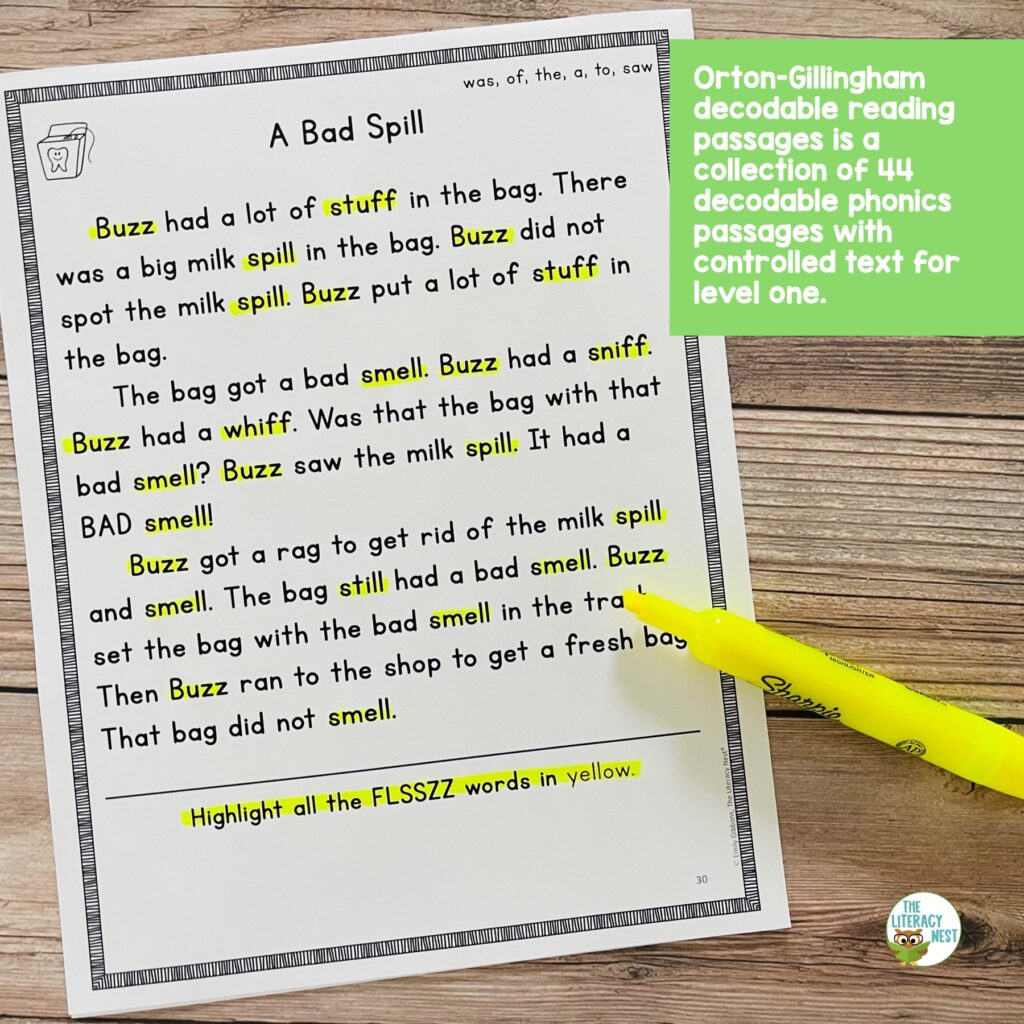 was, of, the, a, to, saw
A Bad Spill
Buzz had a lot of stuff in the bag. There
was a big milk spill in the bag. Buzz did not
spot the milk spill. Buzz put a lot of stuff in
the bag.
The bag got a bad smell. Buzz had a sniff.
Buzz had a whiff. Was that the bag with that
bad smell? Buzz saw the milk spill. It had a
BAD smell!
Buzz got a rag to get rid of the milk spill
and smell. The bag still had a bad smell. Buzz
set the bag with the bad smell in the
Then Buzz ran to the shop to get a fresh bag
That bag did not smell.
Highlight all the FLSSZZ words in yellow.
© Emily Gibbons, The Literacy Nest®
30
Orton-Gillingham
decodable reading
passages is a
collection of 44
decodable phonics
passages with
controlled text for
level one.
HIGHLIGHTER
Sharpie
AP
THE
LITERACY
NEST